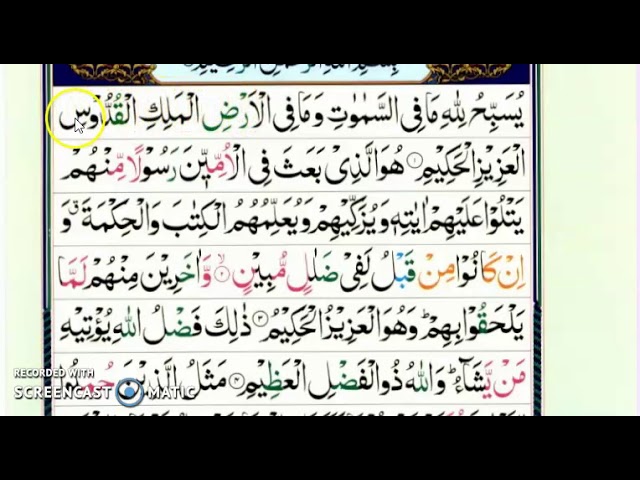 بِسْمِ اللهِ الرَّحْمٰنِ الرَّحِيْمِ
يُسَبِّحُ لِلّٰهِ مَا فِى السَّمٰوٰتِ وَمَا فِى الْاَرْضِ الْمَلِكِ الْقُدُّوْسِ
الْعَزِيْزِ الْحَكِيْمِ ۝۱ هُوَ الَّذِىْ بَعَثَ فِى الْاُمِّيّٖنَ رَسُوْلًا مِّنْهُمْ
يَتْلُوْا عَلَيْهِمْ اٰيٰتِهٖ وَيُزَكِّيْهِمْ وَيُعَلِّمُهُمُ الْكِتٰبَ وَالْحِكْمَةَ ۗ وَ
اِنْ كَانُوْا مِنْ قَبْلُ لَفِىْ ضَلٰلٍ مُّبِيْنٍ ۝۲ۙ وَّاٰخَرِيْنَ مِنْهُمْ لَمَّا
يَلْحَقُوْا بِهِمْ ؕ وَهُوَ الْعَزِيْزُ الْحَكِيْمُ ۝۳ ذٰلِكَ فَضْلُ اللهِ يُؤْتِيْهِ
مَنْ يَّشَآءُ ؕ وَاللهُ ذُو الْفَضْلِ الْعَظِيْمِ ۝۴ مَثَلُ الَّذِيْنَ حُمِّلُوا
RECORDED WITH
SCREENCAST MATIC